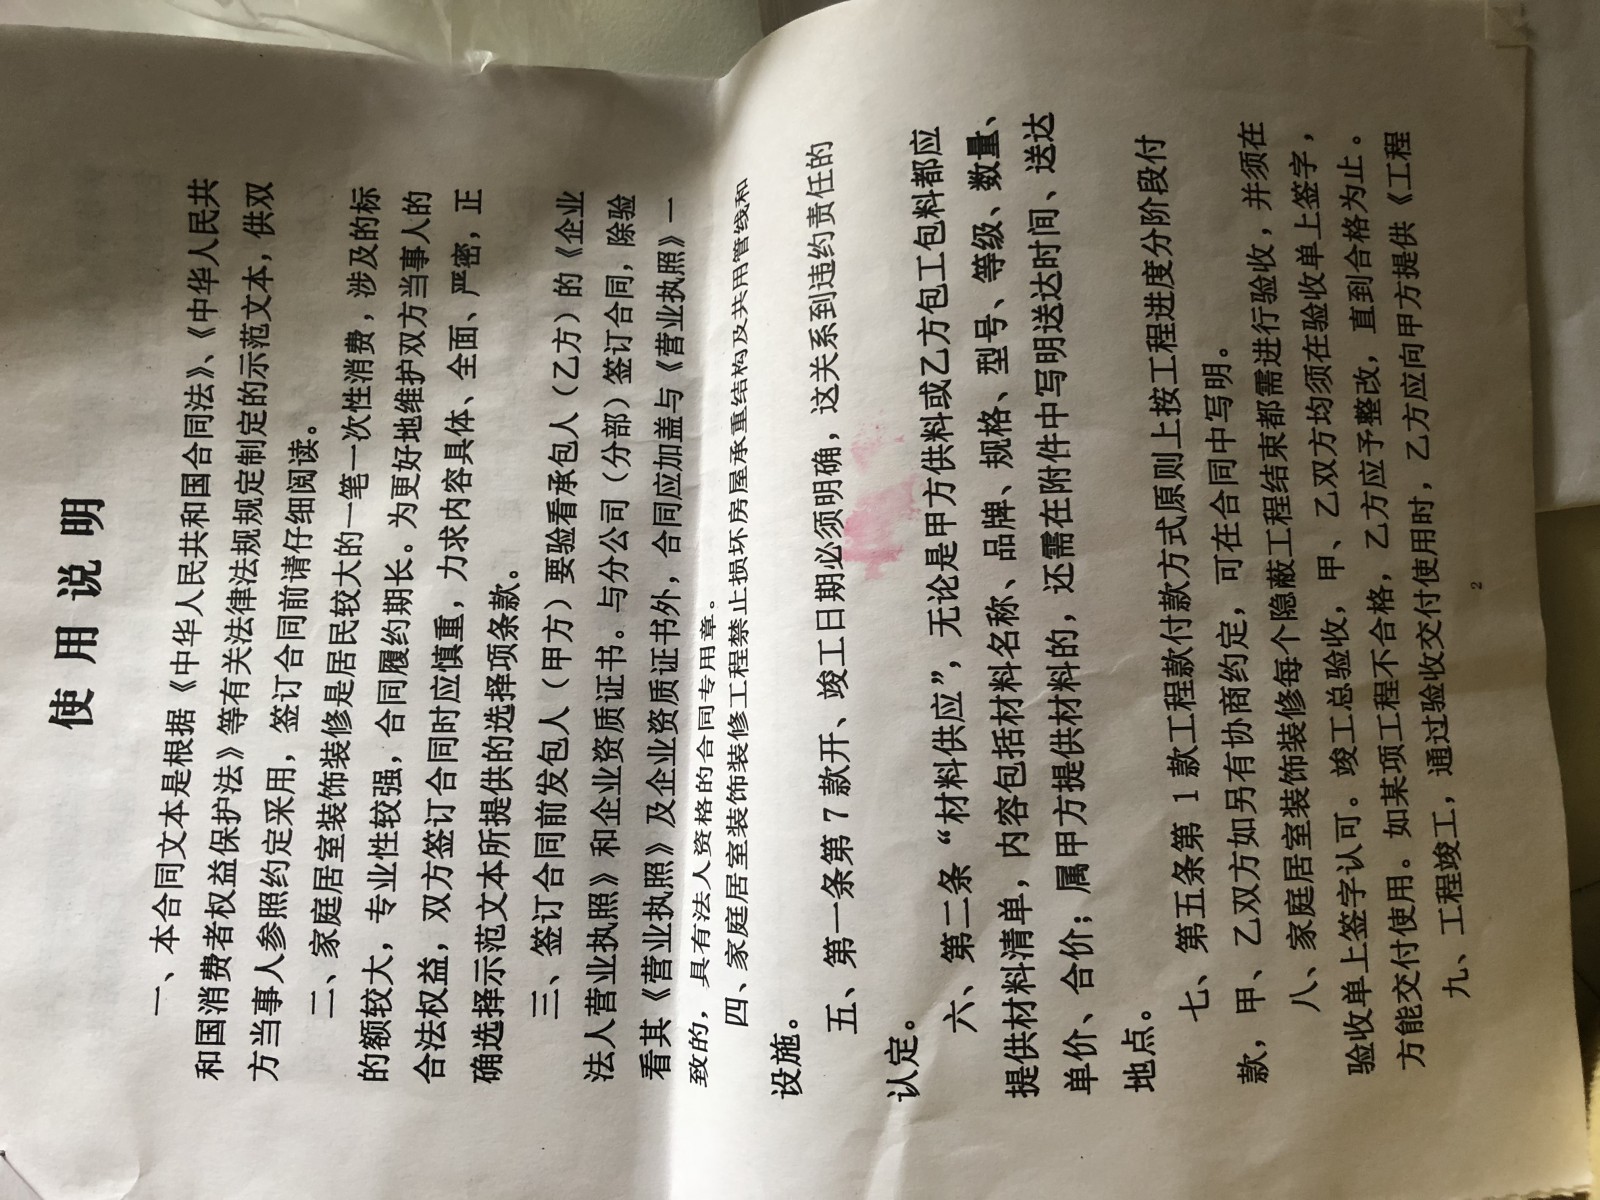 使用说明
一、本合同文本是根据《中华人民共和国合同法》、《中华人民共
和国消费者权益保护法》等有关法律法规规定制定的示范文本，供双
方当事人参照约定采用，签订合同前请仔细阅读。
二、家庭居室装饰装修是居民较大的一笔一次性消费，涉及的标
的额较大，专业性较强，合同履约期长。为更好地维护双方当事人的
合法权益，双方签订合同时应慎重，力求内容具体、全面、严密，正
确选择示范文本所提供的选择项条款。
三、签订合同前发包人（甲方）要验看承包人（乙方）的《企业
法人营业执照》和企业资质证书。与分公司（分部）签订合同，除验
看其《营业执照》及企业资质证书外，合同应加盖与《营业执照》一
致的，具有法人资格的合同专用章。
四、家庭居室装饰装修工程禁止损坏房屋承重结构及共用管线和
设施。
五、第一条第7款开、竣工日期必须明确，这关系到违约责任的
认定。
六、第二条“材料供应”，无论是甲方供料或乙方包工包料都应
提供材料清单，内容包括材料名称、品牌、规格、型号、等级、数量、
单价、合价；属甲方提供材料的，还需在附件中写明送达时间、送达
地点。
七、第五条第1款工程款付款方式原则上按工程进度分阶段付
款，甲、乙双方如另有协商约定，可在合同中写明。
八、家庭居室装饰装修每个隐蔽工程结束都需进行验收，并须在
验收单上签字认可。竣工总验收，甲、乙双方均须在验收单上签字，
方能交付使用。如某项工程不合格，乙方应予整改，直到合格为止。
九、工程竣工，通过验收交付使用时，乙方应向甲方提供《工程
2